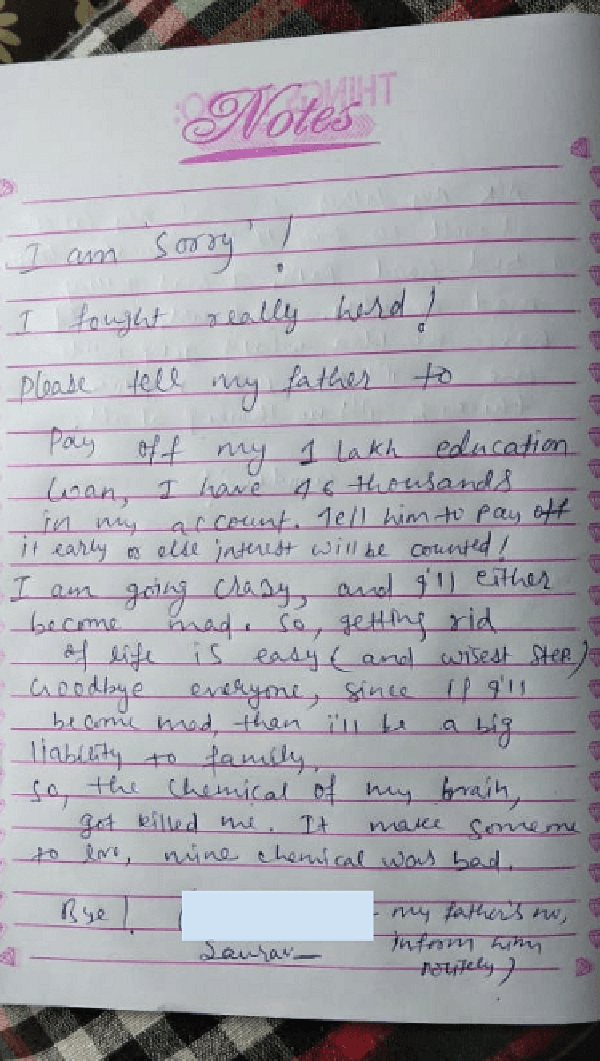 THINGS TO DO:
Notes
I am 'sorry' !
I fought really herd!
please tell my father to
Pay off my 1 lakh education
loan, I have 46 thousands
in my account. Tell him to pay off
it early or else interest will be counted!
I am going crazy, and I'll either
become mad. So, getting rid
of life is easy (and wisest step)
Goodbye everyone, since if I'll
become mad, than i'll be a big
liability to family.
So, the chemical of my brain,
got killed me. It make someone
to love, mine chemical was bad.
Bye! ( - my father's no,
Saurav inform him
politely)